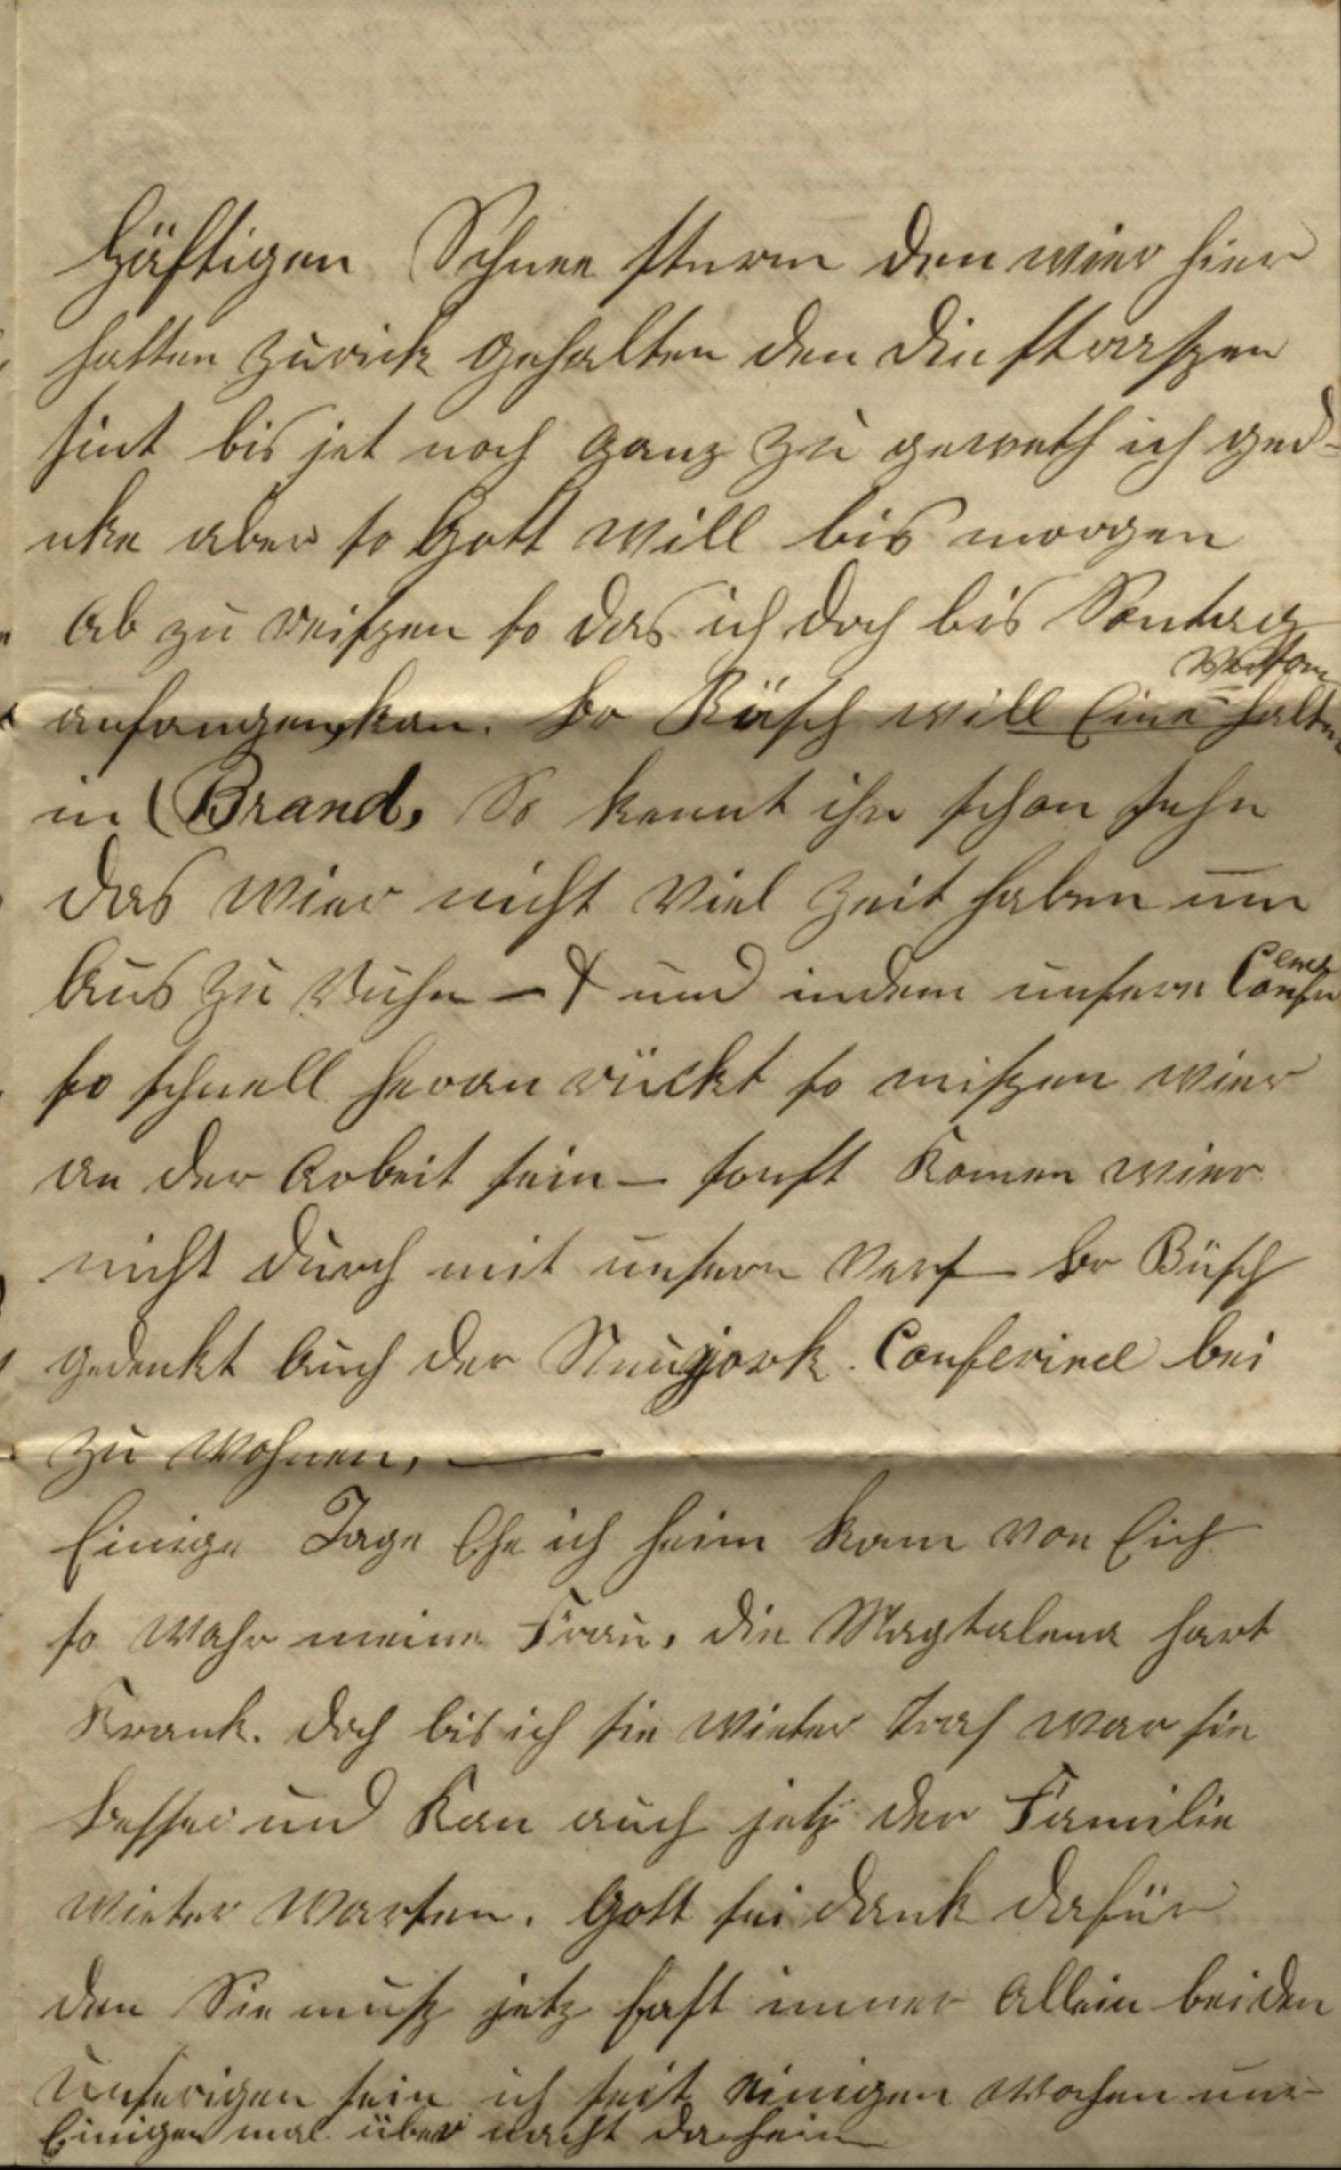 häftigen Schnee sturm den wier hier
hatten zurick gehalten den die straszen
sint bis jet noch ganz zu geweth ich ged-
nke aber so Gott will bis morgen
ab zu reiszen so das ich doch bis Sontag
anfangen kan. Br Büsch will Eine halten
in Brand, So kennt ihr schon sehn
das wier nicht viel Zeit haben um
Aus zu Ruhn — & und indem unsere Confe
renz
so schnell heran rückt so miszen wier
an der Arbeit sein — sonst komen wier
nicht durch mit unsern Vers — Br Büsch
gedenkt Auch der Neujork. Conferince bei
zu wohnen, —
Einige Tage Ehe ich heim kam von Eich
so wahr meine Frau, die Magtalena hart
Krank. doch bis ich sie wieter traf war sie
besser und kan auch jetz der Familie
wieter warten. Gott sei dank dafür
den Sie musz jetz fast imer Allein bei den
Unserigen sein ich seit einigen wochen nur
Einigen mal über nacht daheim